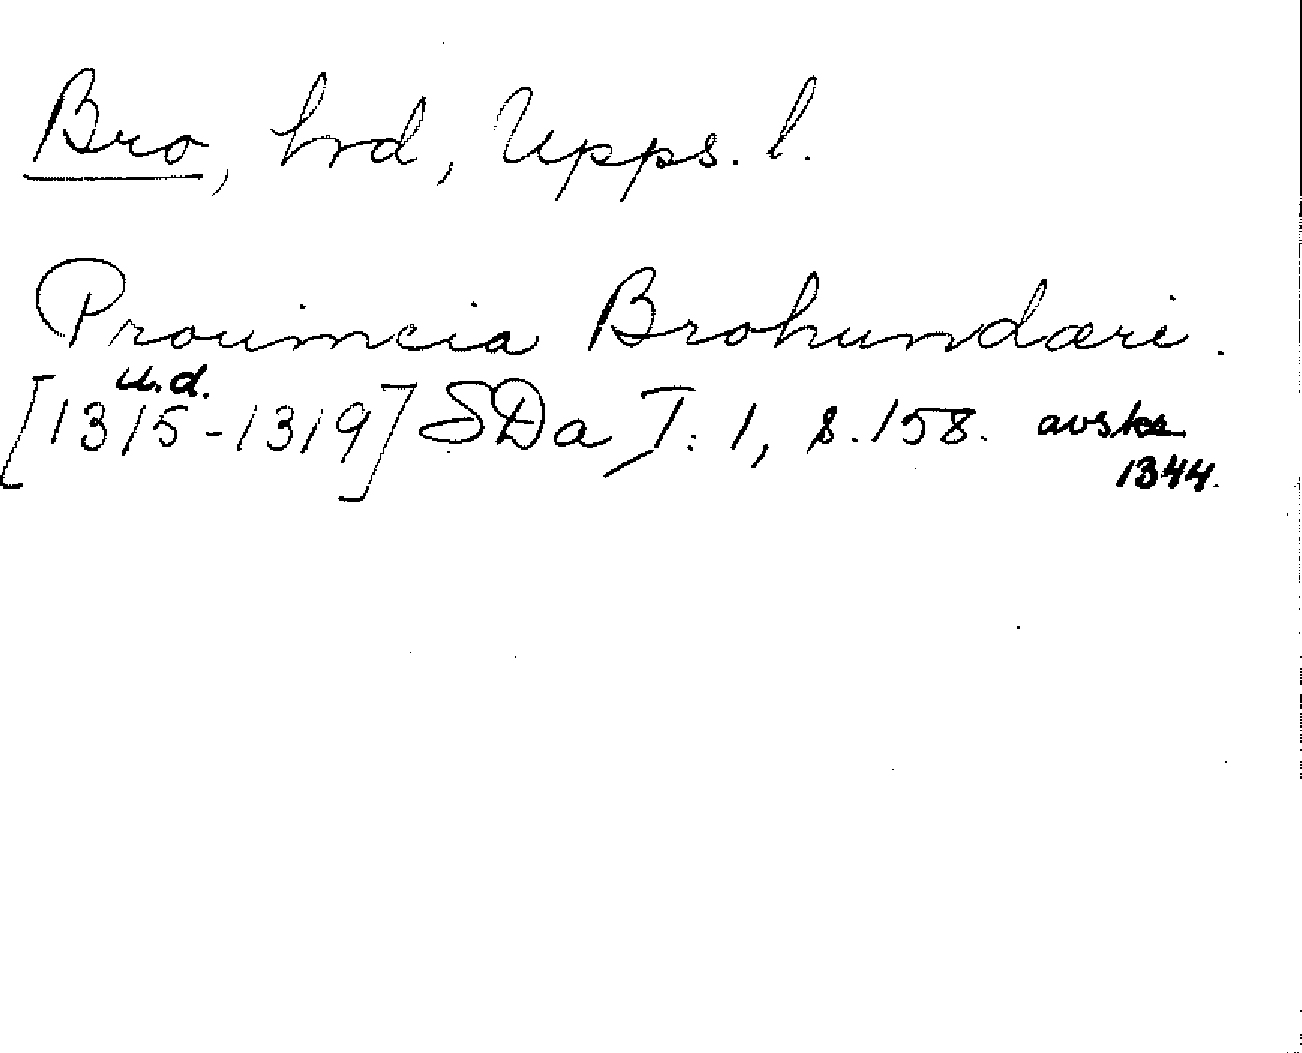 Bro, hrd, Upps. l.
Prouincia Brohundæri.
u.d.
[1315-1319] SDa I: 1, s. 158. avskr.
1344.